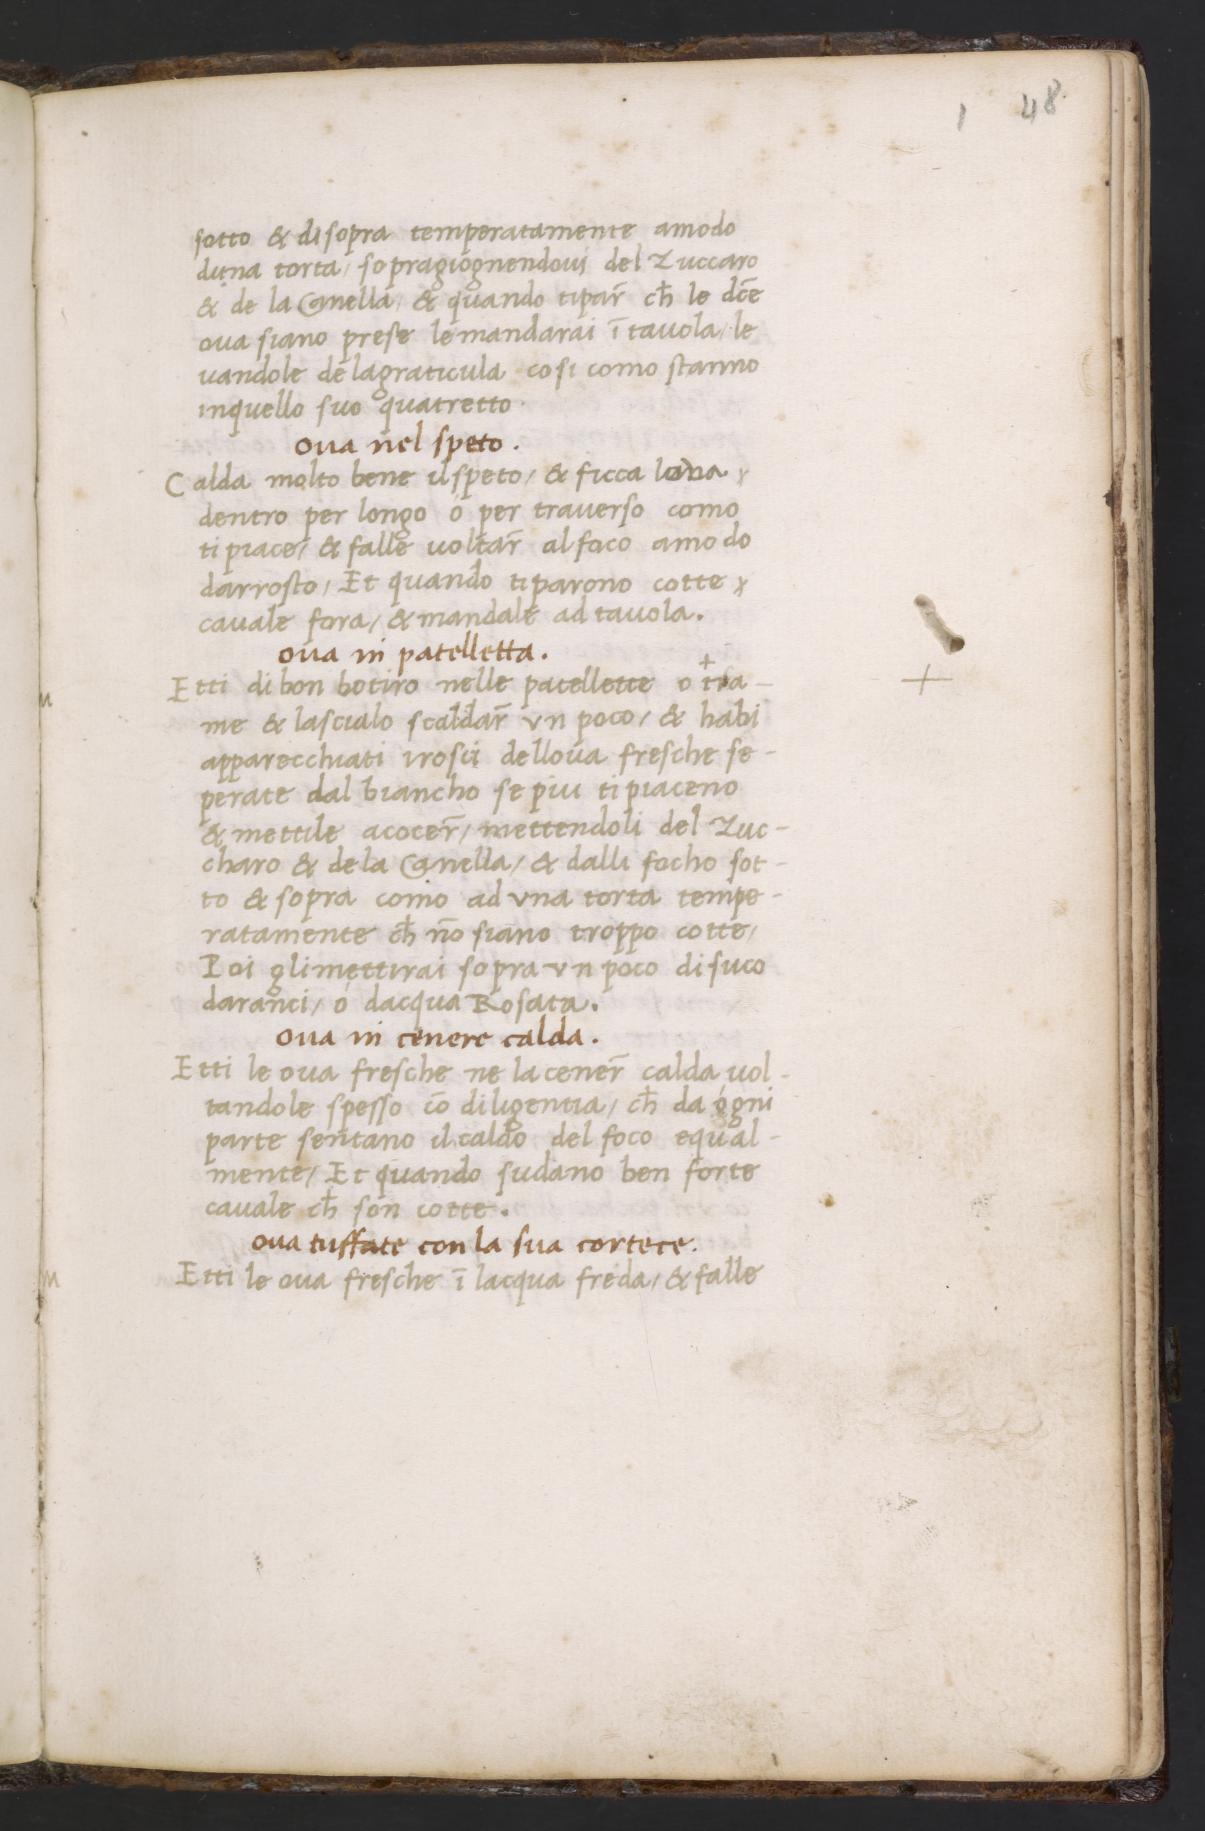 1 48
sotto & disopra temperatamente amodo
duna torta, sopragiognendoui del Zuccaro
& de la Canella, & quando tipar̄ ch̄ le dc̄e
oua siano prese lemandarai ī tauola, le
uandole de lagraticula cosi como stanno
inquello suo quatretto.
oua nel speto.
Calda molto bene ilspeto, & ficca loua
dentro per longo o per trauerso como
ti piace, & falle uoltar̄ alfoco amodo
darrosto, Et quando tiparono cotte
cauale fora, & mandale ad tauola.
oua in patelletta.
Etti di bon botiro nelle patellette o
me & lascialo scaldar̄ vn poco, & habi
apparecchiati irosci delloua fresche se-
perate dal biancho se piu ti piaceno
& mettile acocer̄, mettendoli del Zuc-
charo & dela Canella, & dalli focho sot-
to & sopra como ad vna torta tempe-
ratamente ch̄ nō siano troppo cotte,
Poi glimettirai sopra vn poco disuco
daranci, o dacqua Rosata.
oua in cenere calda.
Etti le oua fresche ne lacener̄ calda uol-
tandole spesso cō diligentia, ch̄ da ogni
parte sentano ilcaldo del foco equal-
mente, Et quando sudano ben forte
cauale ch̄ son cotte.
oua tuffate con la sua cortece.
Etti le oua fresche ī lacqua freda, & falle